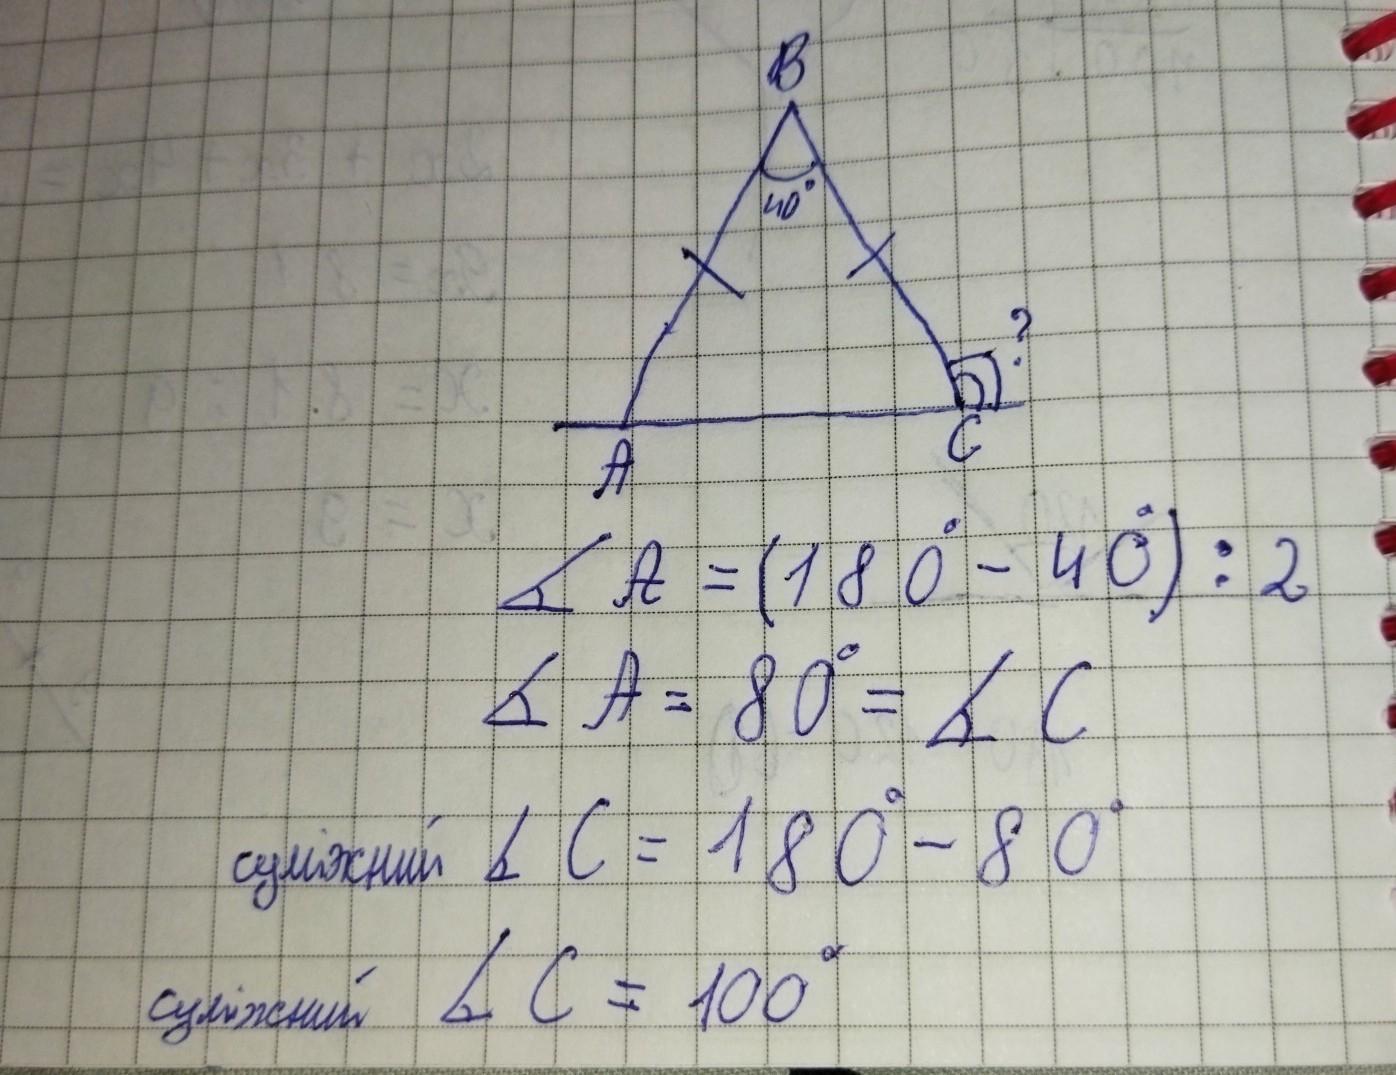 B
40°
?
A
C
∡ A = (180° - 40°) : 2
∡ A = 80° = ∡ C
суміжний ∡ C = 180° - 80°
суміжний ∡ C = 100°